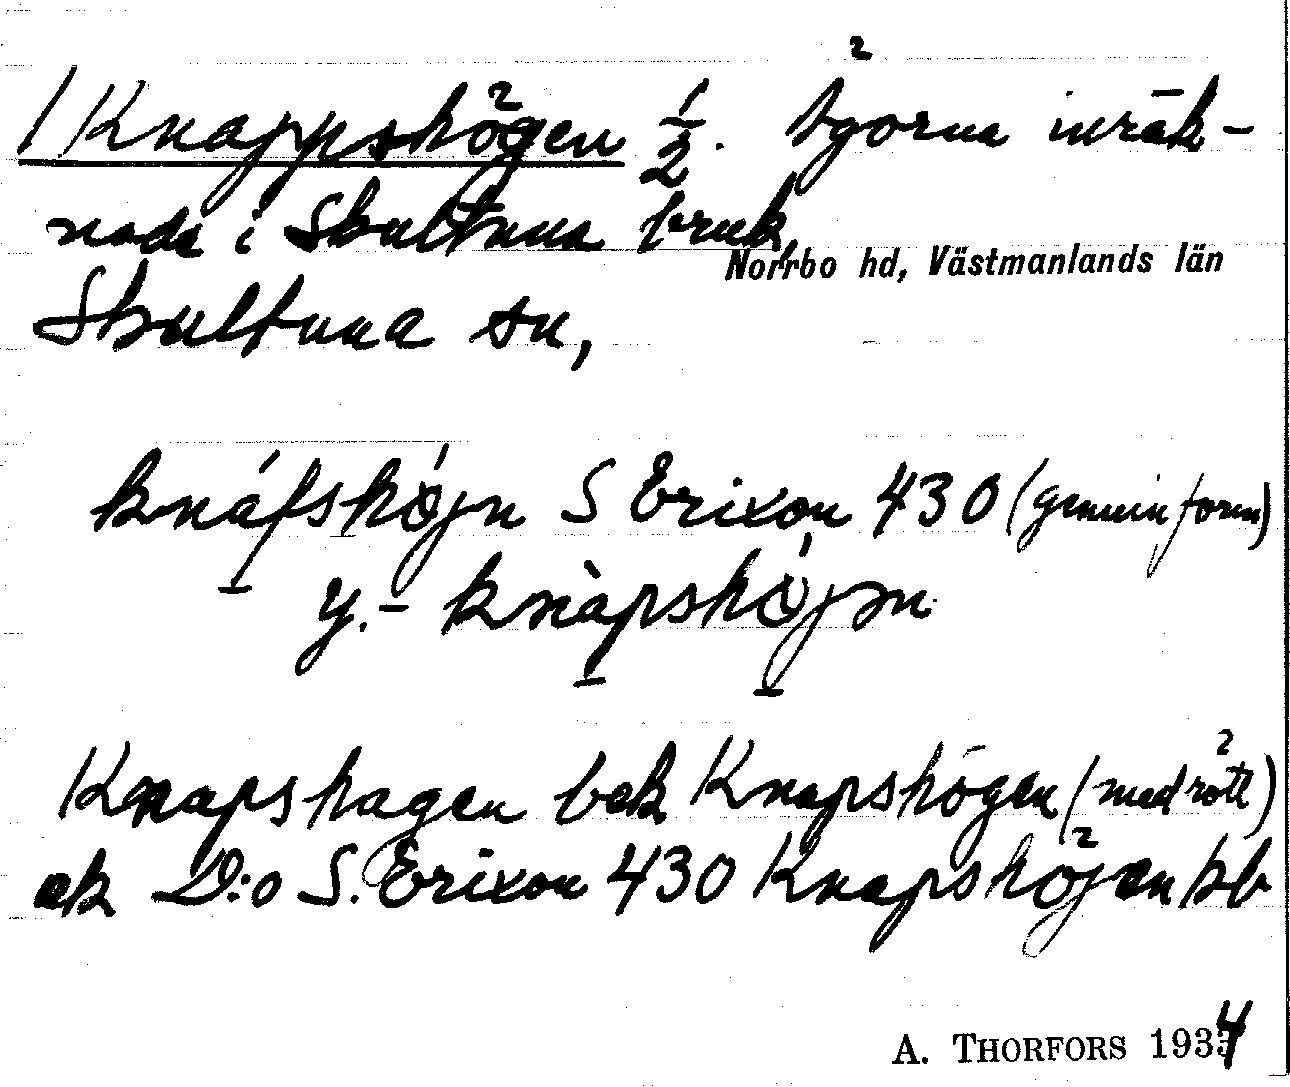 /Knappshögen 1/2. Ägorna inräk-
nade i Skultuna bruk,
Norrbo hd, Västmanlands län
Skultuna sn,
knáfshǿjn S Erixon 430 (genuin form)
y.- knàpshǿjən
Knapshagen bek Knapshögen (med rött)
ek D:o S. Erixon 430 Knapshöjen jb
A. THORFORS 1934